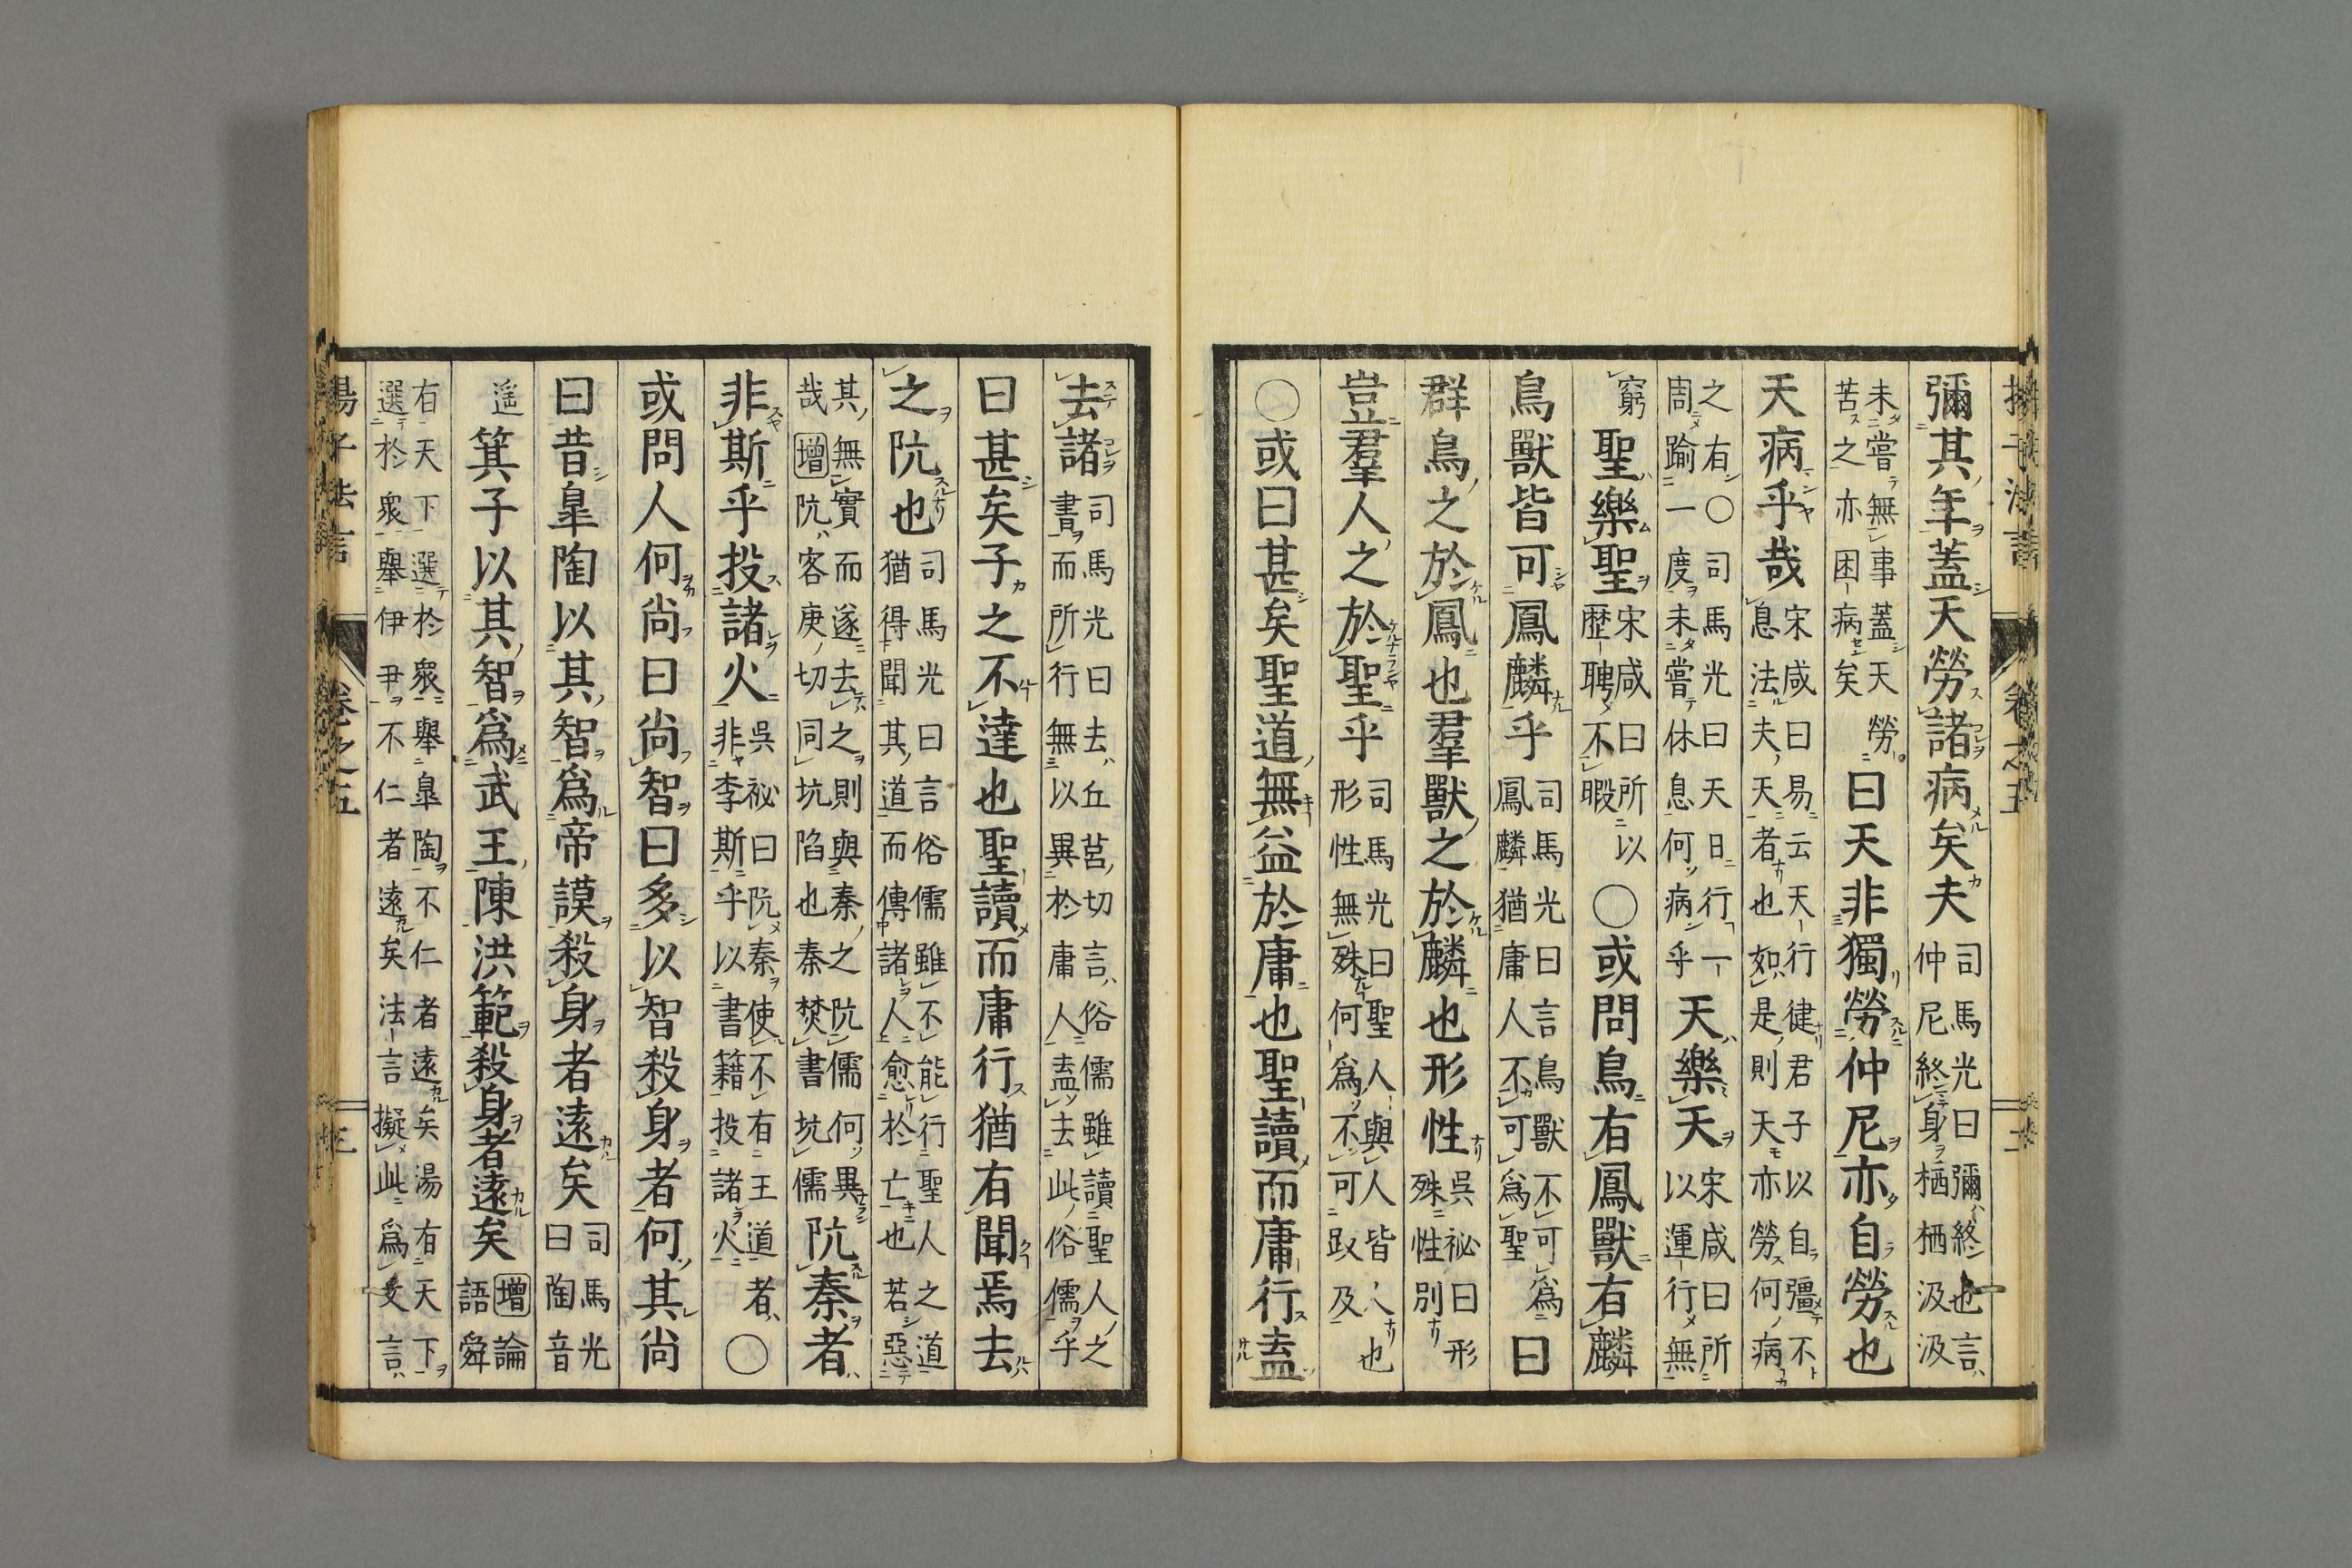 彌其年蓋天勞諸病矣夫司馬光曰彌終也言仲尼終身栖栖汲汲
未嘗無事蓋天勞苦之亦困病矣曰天非獨勞仲尼亦自勞也
天病乎哉宋咸曰易云天行健君子以自彊不息法夫天者也如是則天亦勞何病
之有○司馬光曰天日行一周踰一度未嘗休息何病乎天樂天宋咸曰所以運行無
窮聖樂聖宋咸曰所以歷聘不暇○或問鳥有鳳獸有麟
鳥獸皆可鳳麟乎司馬光曰言鳥獸不可爲鳳麟猶庸人不可爲聖曰
群鳥之於鳳也羣獸之於麟也形性吳祕曰形殊性別
豈羣人之於聖乎司馬光曰聖人與人皆人也形性無殊何爲不可跂及
○或曰甚矣聖道無益於庸也聖讀而庸行盍
去諸司馬光曰去丘莒切言俗儒雖讀聖人之書而所行無以異於庸人盍去此俗儒乎
曰甚矣子之不達也聖讀而庸行猶有聞焉去
之阬也司馬光曰言俗儒雖不能行聖人之道猶得聞其道而傳諸人愈於亡也若惡
其無實而遂去之則與秦之阬儒何異哉增阬客庚切同坑陷也秦焚書坑儒阬秦者
非斯乎投諸火吳祕曰阬秦使不有王道者非李斯乎以書籍投諸火○
或問人何尚曰尚智曰多以智殺身者何其尚
曰昔皐陶以其智爲帝謨殺身者遠矣司馬光曰陶音
遥箕子以其智爲武王陳洪範殺身者遠矣增論語舜
有天下選於衆舉皐陶不仁者遠矣湯有天下選於衆舉伊尹不仁者遠矣法言擬此爲文言
揚子法言 卷之五 二
揚子法言 卷之五 三